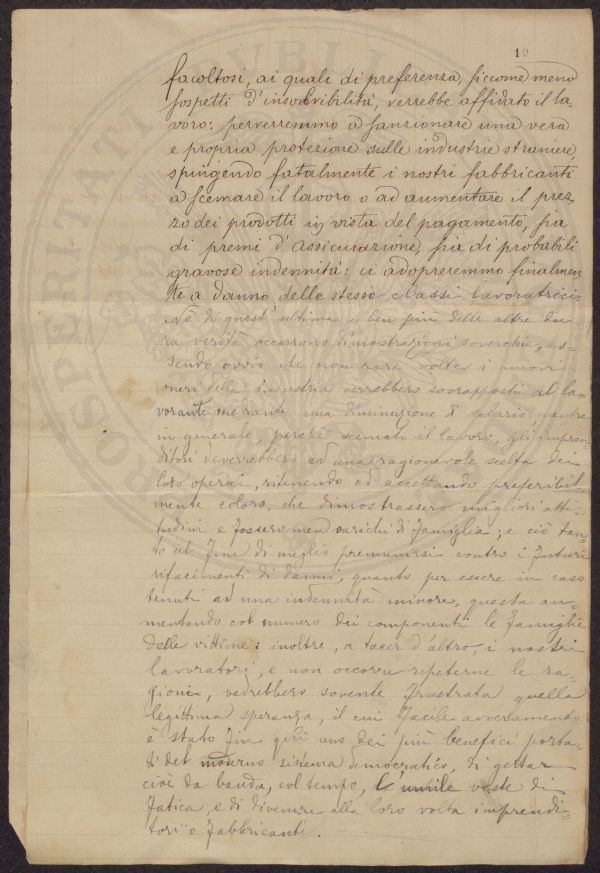 10
facoltosi, ai quali di preferenza, siccome meno
sospetti d'insolvibilità, verrebbe affidato il la-
voro: perverremmo a sanzionare una vera
e propria protezione sulle industrie straniere,
spingendo fatalmente i nostri fabbricanti
a scemare il lavoro o ad aumentare il prez-
zo dei prodotti in vista del pagamento, sia
di premi d'assicurazione, sia di probabili
gravose indennità: ci adopreremmo finalmen-
te a danno delle stesse classi lavoratrici.
Nè di quest'ultima e ben più delle altre du-
ra verità occorrono dimostrazioni soverchie, es-
sendo ovvio che non rare volte i nuovi
oneri della industria verrebbero sovrapposti al la-
vorante mediante una diminuzione di salario, mentre
in generale, perchè scemato il lavoro, gli impren-
ditori verrebbero ad una ragionevole scelta dei
loro operai, ritenendo od accettando preferibil-
mente coloro, che dimostrassero migliori atti-
tudini e fossero men carichi di famiglia; e ciò tan-
to al fine di meglio premunirsi contro i futuri
rifacimenti di danni, quanto per essere in caso
tenuti ad una indennità minore, questa au-
mentando col numero dei componenti le famiglie
delle vittime: inoltre, a tacer d'altro, i nostri
lavoratori, e non occorre ripeterne le ra-
gioni, vedrebbero sovente frustrata quella
legittima speranza, il cui facile avveramento
è stato fin qui uno dei più benefici porta-
ti del moderno sistema democratico, di gettar
cioè da banda, col tempo, l'umile veste di
fatica, e di divenire alla loro volta imprendi-
tori o fabbricanti.
PROSPERITATI PUBLI